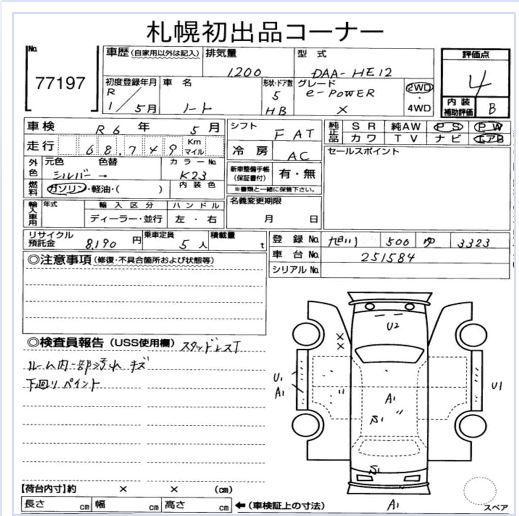 札幌初出品コーナー
No.
77197
車歴 (自家用以外は記入)
排気量
1200
型式
DAA-HE12
評価点
4
内装
補助評価
B
初度登録年月
R 1/5月
車名
ノート
形状・ドア数
5
HB
グレード
e-POWER
X
2WD
4WD
車検
R6年5月
シフト
FAT
純正品
SR 純AW PS PW
カワ TV ナビ エアB
走行
68,749
Km
マイル
冷房
AC
セールスポイント
外色
元色 色替
シルバー→
カラーNo.
K23
新車整備手帳
(保証書付)
※書類と一緒に保管下さい。
有・無
燃料
ガソリン・軽油・( )
内装色
輸入車用
年式
輸入区分
ディーラー・並行
ハンドル
左・右
名義変更期限
月 日
リサイクル
預託金
8,190円
乗車定員
5人
積載量
t
登録No.
旭川 500 ゆ 3323
車台No.
251584
シリアルNo.
◎注意事項 (修復・不具合箇所および状態等)
◎検査員報告 (USS使用欄) スタッドレスT
ルーム内一部汚れ キズ
下回りペイント
U2
X
X
U1
A1
A1
U1
A1
スペア
【荷台内寸】約 × × (cm)
長さ cm 幅 cm 高さ cm ←(車検証上の寸法)